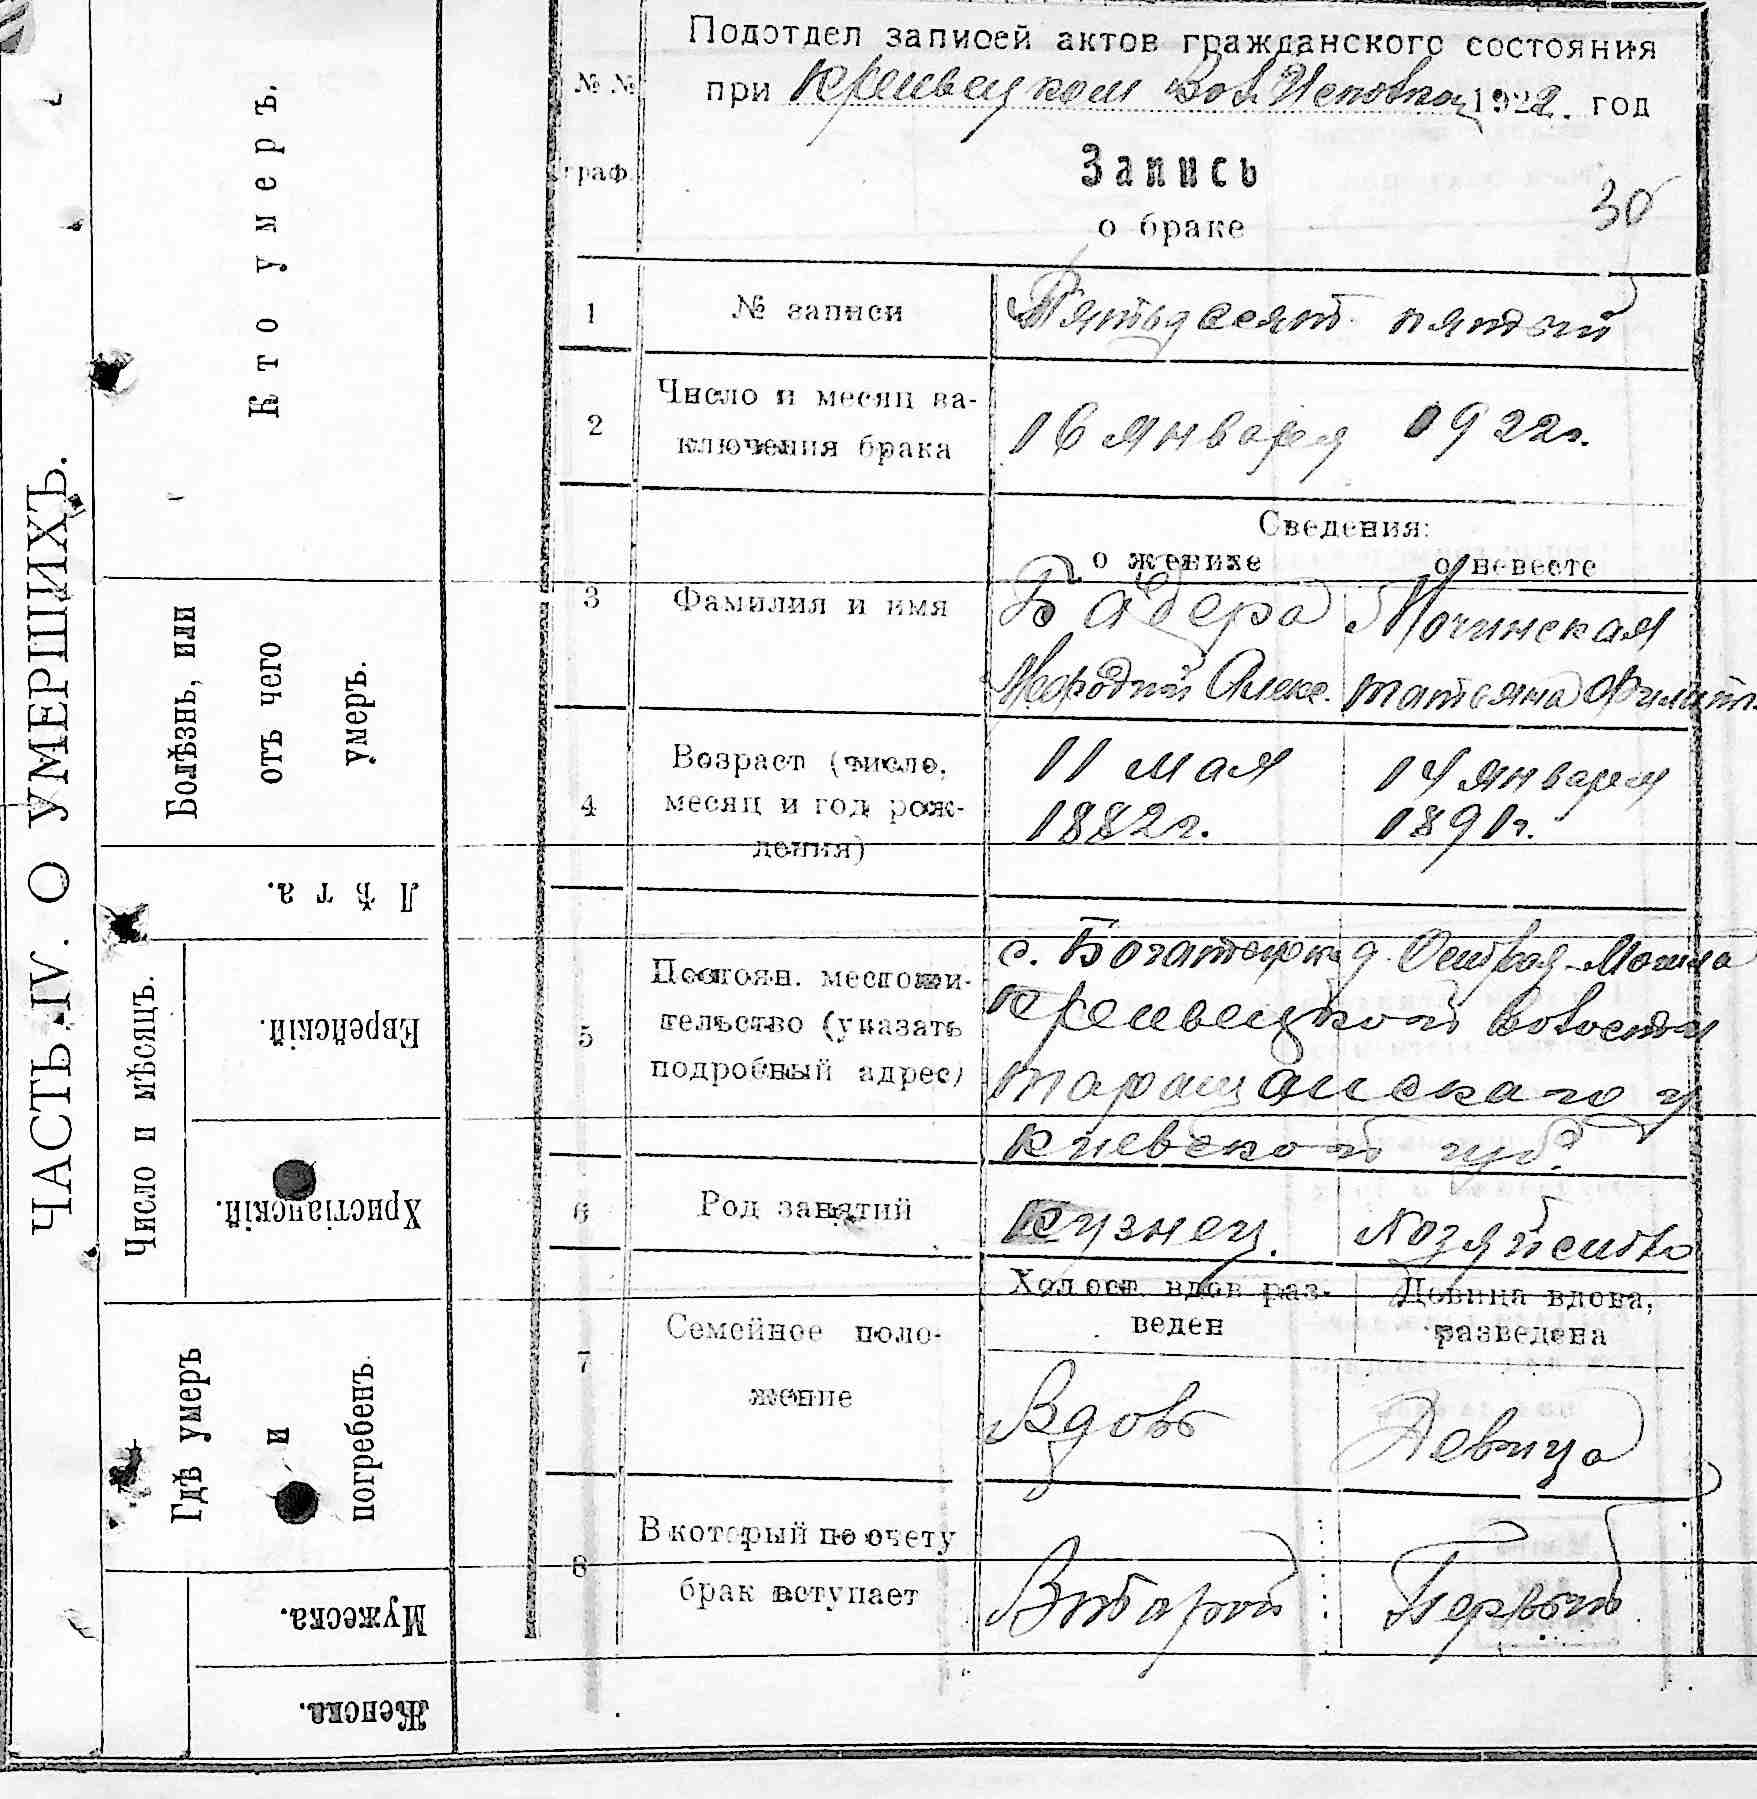 ЧАСТЬ IV. О УМЕРШИХЪ.
Кто умеръ.
Болѣзнь, или
отъ чего
умеръ.
Лѣта.
Число и мѣсяцъ.
Еврейскій.
Христіанскій.
Гдѣ умеръ
и
погребенъ
Мужеска.
Женска.
№ №
граф.
Подотдел записей актов гражданского состояния
при Кривецком Вол. 1922. год
Запись
о браке
30
1 № записи Пятьдесят пятый
2 Число и месяц за-
ключения брака 16 января 1922г.
Сведения:
о женихе о невесте
3 Фамилия и имя Бадера Мочинская
Меродий Алекс. Татьяна Филип.
4 Возраст (число, месяц и год рож-
дения)
11 мая 14 января
1882г. 1891г.
5 Постоян. местожи-
тельство (указать
подробный адрес)
с. Богатырка д. Острая-Могила
волости
Таращанскаго у
Киевской губ.
6 Род занятий Кузнец. Хозяйство
7 Семейное поло-
жение
Холост вдов раз-
веден
Девица вдова,
разведена
Вдовъ Девица
8 В который по счету
брак вступает Второй Первый